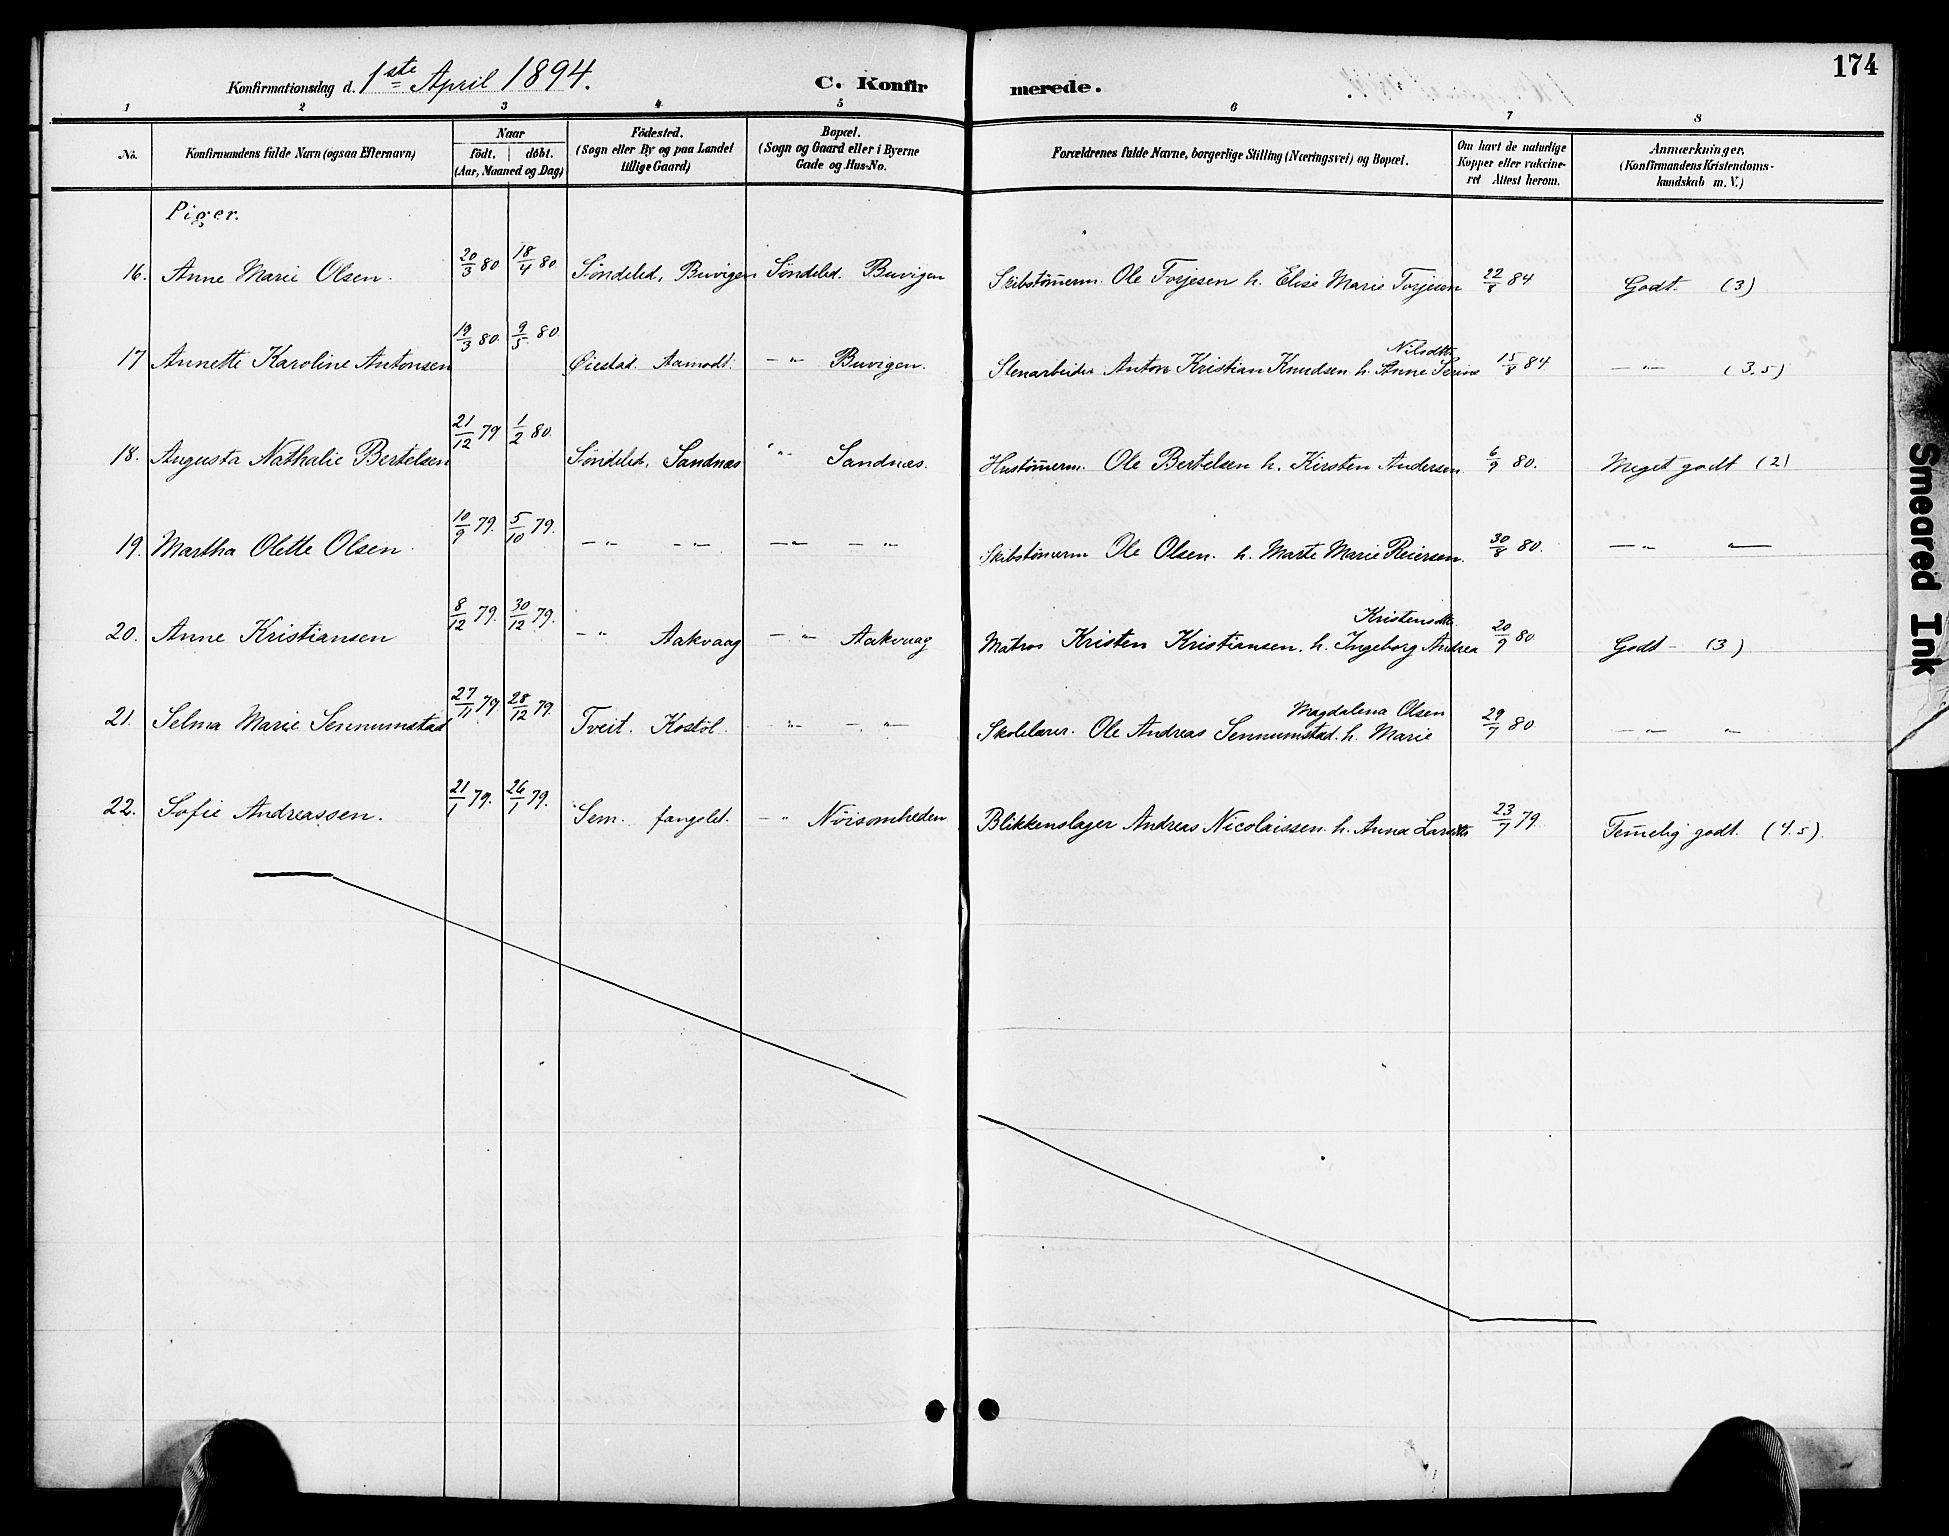 Konfirmationsdag d. 1ste April 1894. C. Konfirmerede. 174
1 2 3 4 5 6 7 8
No. Konfirmandens fulde Navn (ogsaa Efternavn). Naar født. døbt. (Aar, Maaned og Dag) Fødested. (Sogn eller By og paa Landet tillige Gaard) Bopæl. (Sogn og Gaard eller i Byerne Gade og Hus-No. Forældrenes fulde Navne, borgerlige Stilling (Næringsvei) og Bopæl. Om havt de naturlige Kopper eller vakcineret Attest herom. Anmærkninger, (Konfirmandens Kristendomskundskab m. V.)
Piger.
16. Anne Marie Olsen. 20/3 80 18/4 80 Søndeled, Buvigen Søndeled. Buvigen Skibstömerm. Ole Torjesen h. Elise Marie Torjesen 22/8 84 Godt. (3)
17 Annette Karoline Antonsen 19/3 80. 9/5 80 Øiestad. Aamodt. — " — Buvigen. Stenarbeider Anton Kristian Knudsen h. Anne Serine Nilsdtr 15/8 84 — " — (3.5)
18. Augusta Nathalie Bertelsen 21/12 79 1/2 80. Søndeled, Sandnæs " — Sandnæs. Hustömerm. Ole Bertelsen h. Kirsten Andersen. 6/9 80. Meget godt (2)
19. Martha Olette Olsen. 10/9 79. 5/10 79. — " — — " — — " — — " — Skibstömerm Ole Olsen. h. Marte Marie Reiersen. 30/8 80. — " — " —
20. Anne Kristiansen 8/12 79. 30/12 79. — " Aakvaag — " — Aakvaag Matros Kristen Kristiansen. h. Ingeborg Andrea Kristensdtr. 20/9 80 Godt — (3)
21. Selma Marie Sennumstad 27/11 79 28/12 79. Tveit. Kostöl. — " — — " — Skolelærer. Ole Andreas Sennumstad. h. Marie Magdalena Olsen 29/7 80 — " — " —
22. Sofie Andreassen. 21/1 79. 26/1 79. Sem. fangslet. — " Nöisomheden Blikkenslager Andreas Nicolaissen. h. Anna Larsdtr 23/7 79 Temelig godt. (4.5).
Smeared Ink